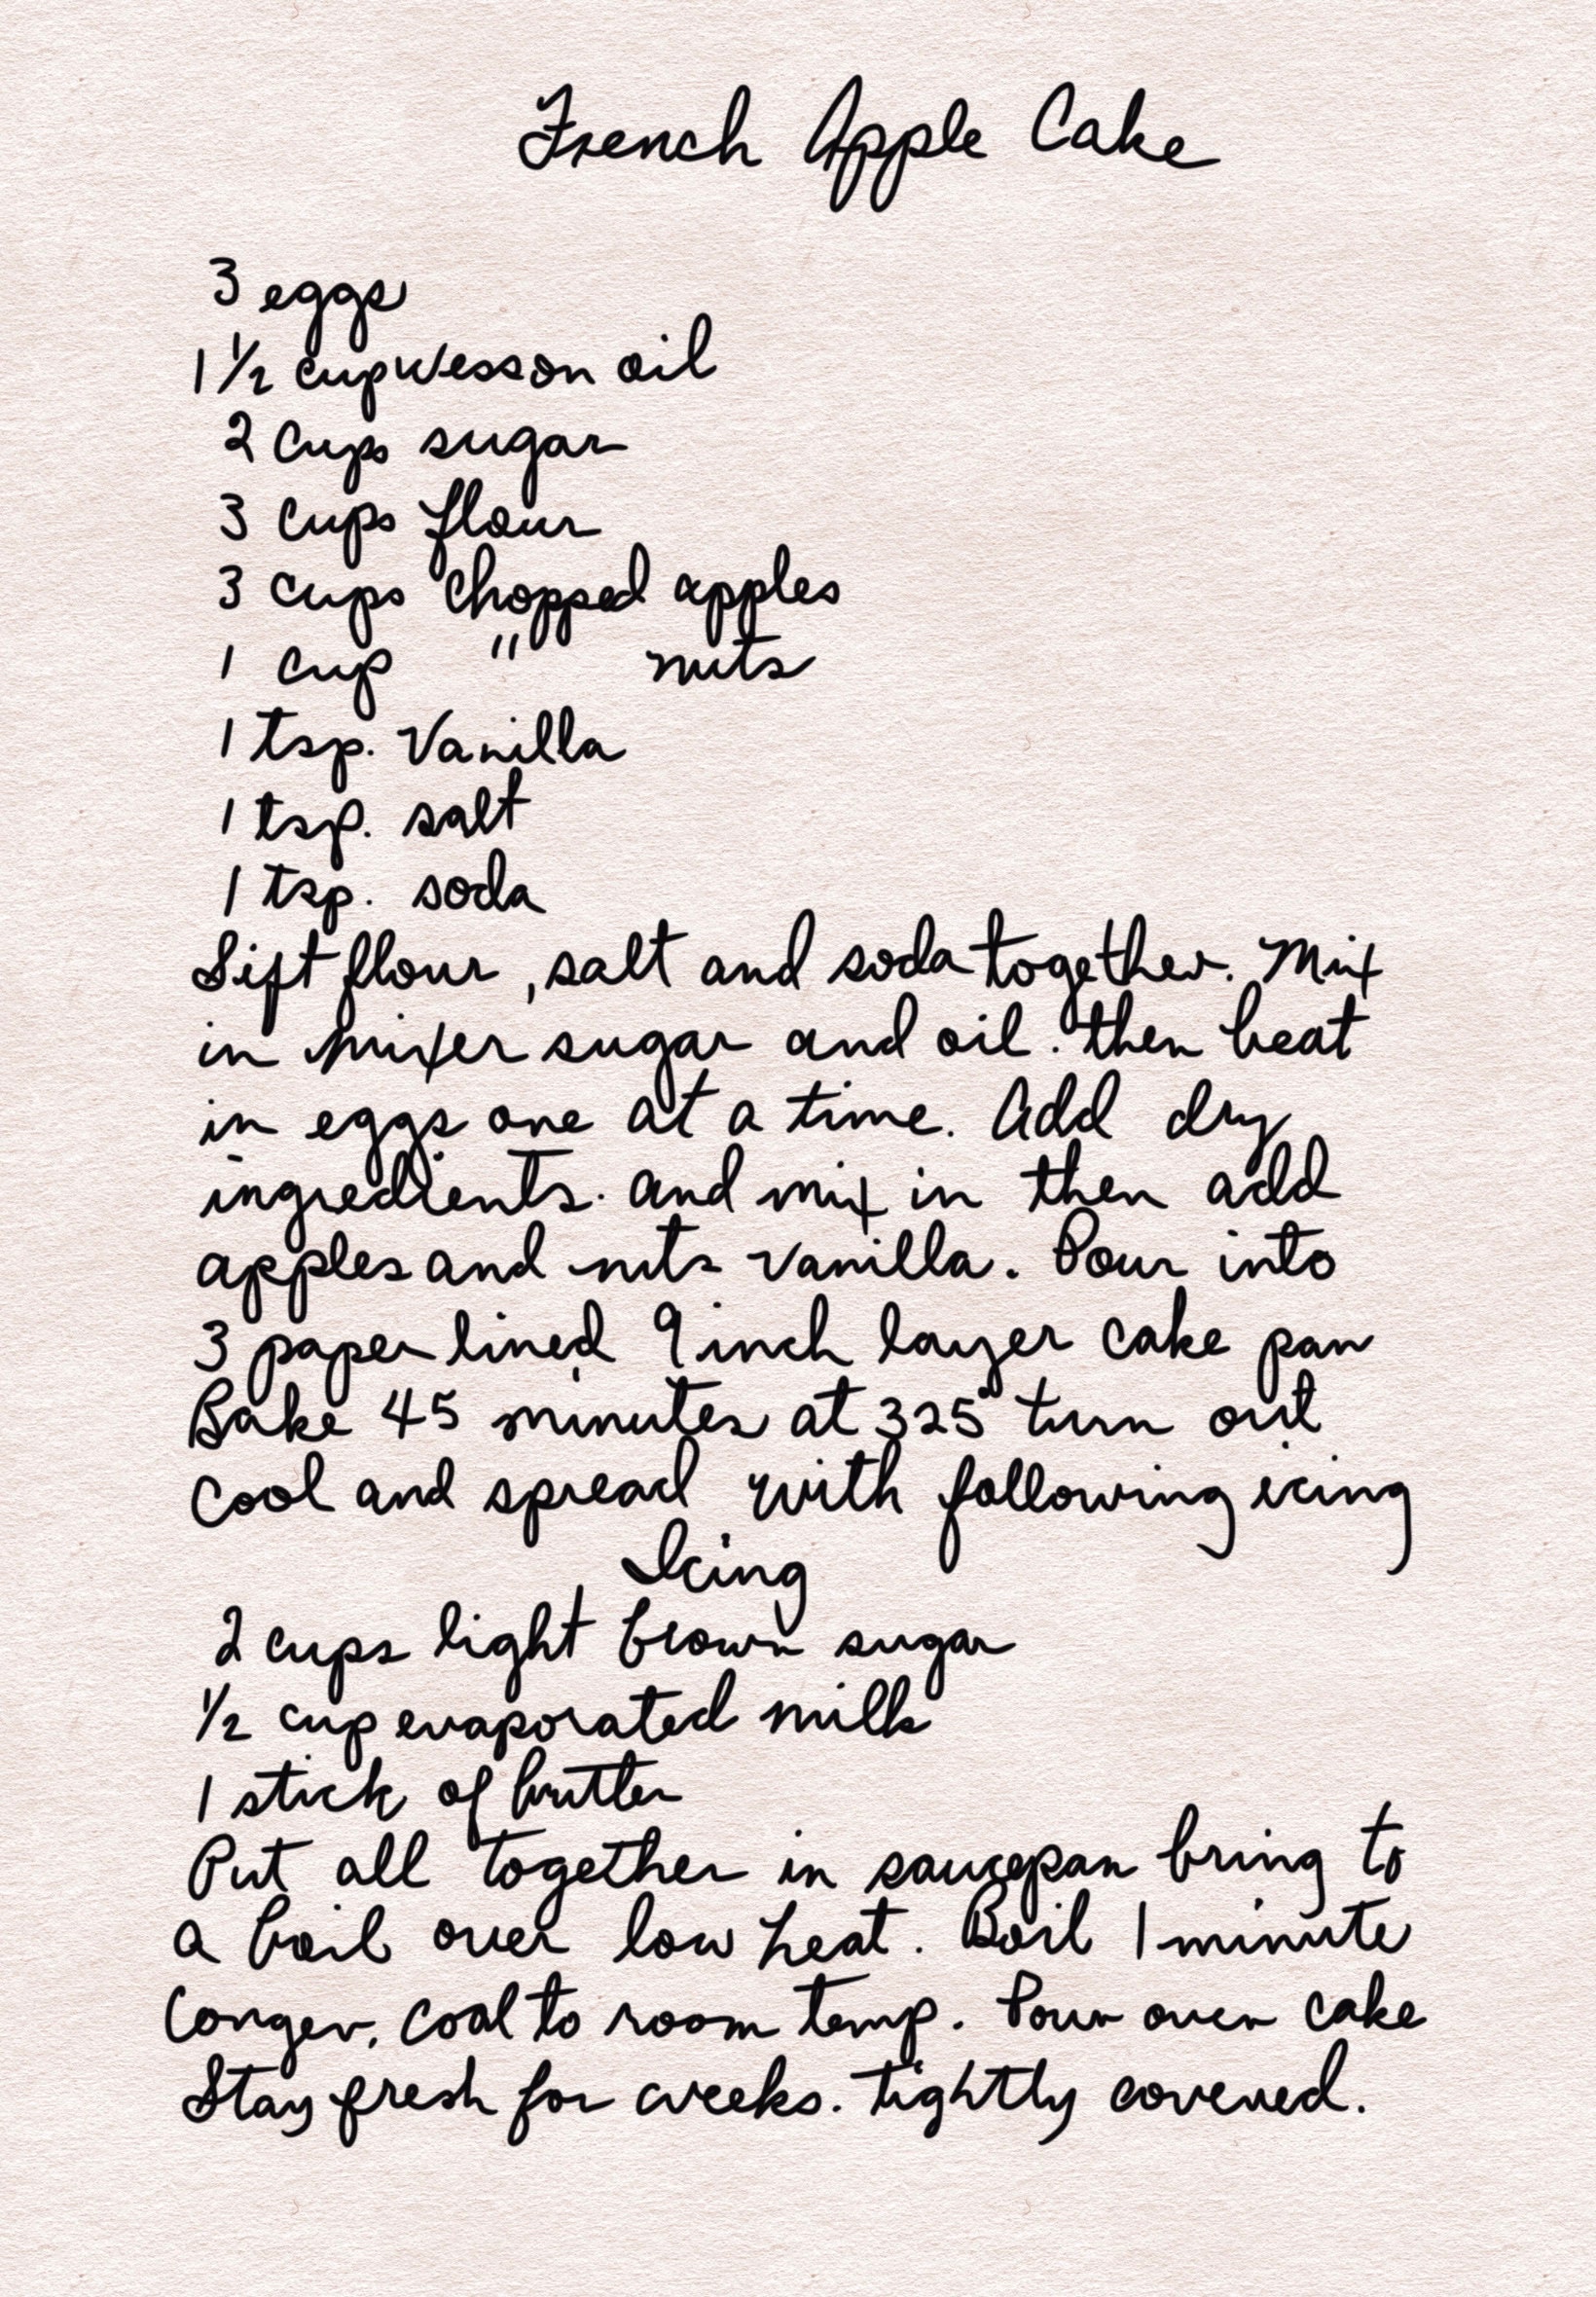 French Apple Cake
3 eggs
1 1/2 cup Wesson oil
2 cups sugar
3 cups flour
3 cups chopped apples
1 cup " nuts
1 tsp. Vanilla
1 tsp. salt
1 tsp. soda
Sift flour, salt and soda together. Mix
in mixer sugar and oil. then beat
in eggs one at a time. Add dry
ingredients. and mix in then add
apples and nuts vanilla. Pour into
3 paper lined 9 inch layer cake pan
Bake 45 minutes at 325° turn out
Cool and spread with following icing
Icing
2 cups light brown sugar
1/2 cup evaporated milk
1 stick of butter
Put all together in saucepan bring to
a boil over low heat. Boil 1 minute
longer. Cool to room temp. Pour over cake
Stay fresh for weeks. tightly covered.